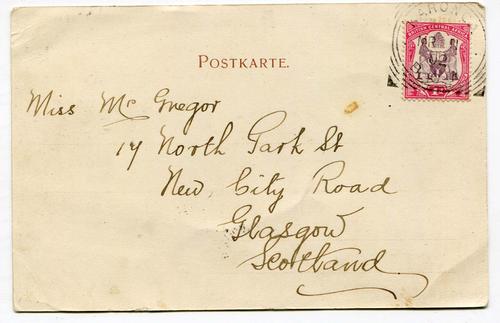 POSTKARTE.
BRITISH CENTRAL AFRICA
Miss Mc Gregor
17 North Park St
New City Road
Glasgow
Scotland